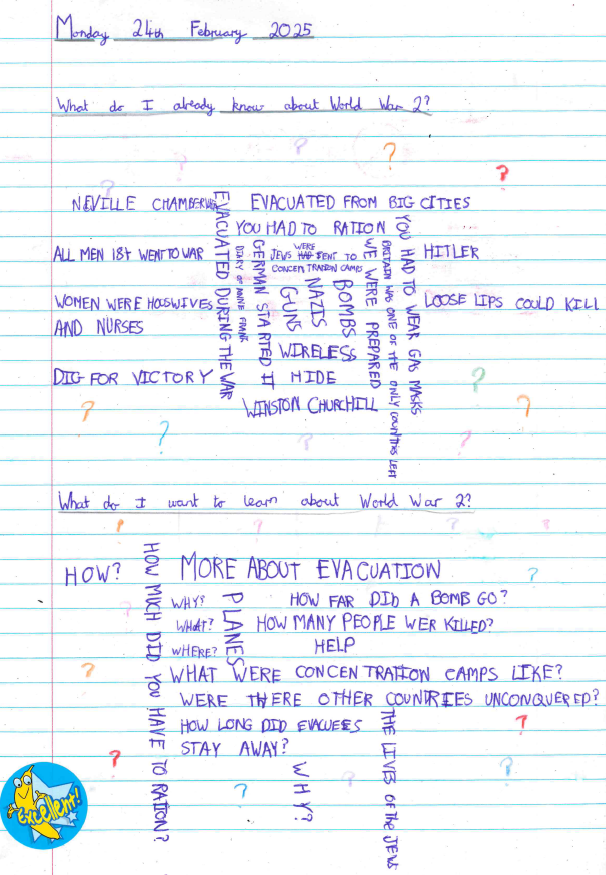 Monday 24th February 2025
What do I already know about World War 2?
NEVILLE CHAMBERLAIN
EVACUATED FROM BIG CITIES
YOU HAD TO RATION
ALL MEN 18+ WENT TO WAR
EVACUATED DURING THE WAR
DIARY OF ANNE FRANK
GERMAN STARTED IT
JEWS WERE SENT TO
CONCENTRATION CAMPS
GUNS
NAZIS
BOMBS
WE WERE PREPARED
BRITAIN WAS ONE OF THE ONLY COUNTRIES LEFT
YOU HAD TO WEAR GAS MASKS
HITLER
WOMEN WERE HOUSWIVES
AND NURSES
LOOSE LIPS COULD KILL
WIRELESS
DIG FOR VICTORY
HIDE
WINSTON CHURCHILL
What do I want to learn about World War 2?
HOW?
HOW MUCH DID YOU HAVE TO RATION?
MORE ABOUT EVACUATION
WHY?
WHAT?
WHERE?
PLANES
HOW FAR DID A BOMB GO?
HOW MANY PEOPLE WER KILLED?
HELP
WHAT WERE CONCENTRATION CAMPS LIKE?
WERE THERE OTHER COUNTRIES UNCONQUERED?
HOW LONG DID EVACUEES
STAY AWAY?
WHY?
THE LIVES OF THE JEWS
Excellent!